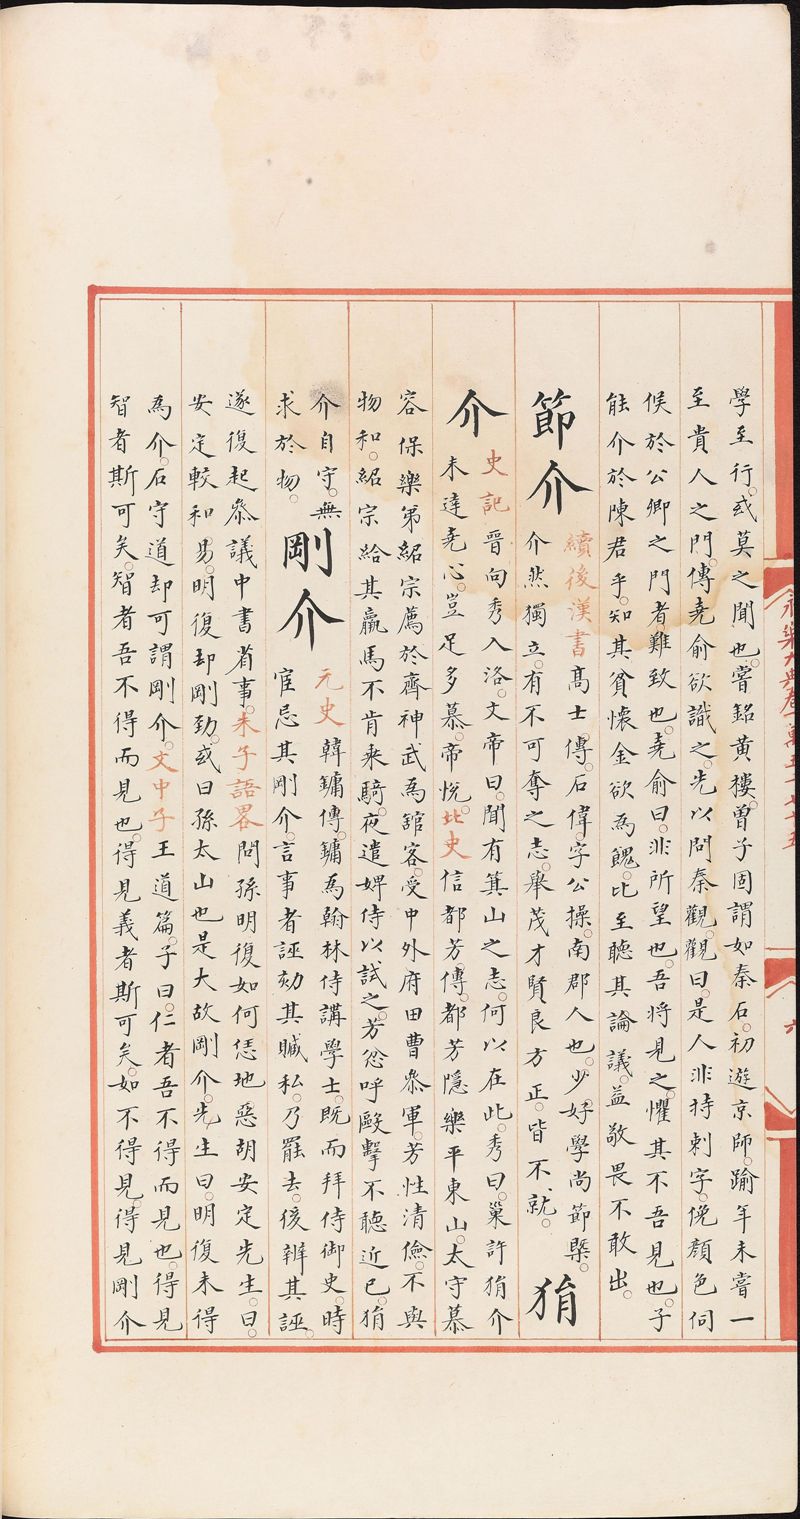 永樂大典卷一萬五千七十五
六
學至行。或莫之聞也。嘗銘黄樓。曾子固謂如秦石。初遊京師。踰年未嘗一
至貴人之門。傳堯俞欲識之。先以問秦觀。觀曰。是人非持刺字。俛顏色伺
候於公卿之門者。難致也。堯俞曰。非所望也。吾將見之。懼其不吾見也。子
能介於陳君乎。知其貧。懷金欲為餽。比至聽其論議。益敬畏不敢出。
節介
續後漢書高士傳。石偉。字公操。南郡人也。少好學尚節槩。
介然獨立。有不可奪之志。舉茂才賢良方正。皆不就。
狷
介
史記晉向秀入洛。文帝曰。聞有箕山之志。何以在此。秀曰。巢許狷介
未達堯心。豈足多慕。帝悅。北史信都芳傳。都芳隱樂平東山。太守慕
容保樂弟紹宗薦於齊神武為舘客。受中外府田曹參軍。芳性清儉。不與
物和。紹宗給其驘馬不肯乘騎。夜遣婢侍以試之。芳忿呼毆擊不聽近已。狷
介自守。無
求於物。
剛介
元史韓鏞傳。鏞為翰林侍講學士。既而拜侍御史。時
宦忌其剛介。言事者誣劾其贓私。乃罷去。後辨其誣。
遂復起叅議中書省事。朱子語畧問孫明復如何恁地惡胡安定先生。曰。
安定較和易。明復却剛勁。或曰孫太山也是大故剛介。先生曰。明復未得
為介。石守道却可謂剛介。文中子王道篇。子曰。仁者吾不得而見也。得見
智者斯可矣。智者吾不得而見也。得見義者斯可矣。如不得見。得見剛介